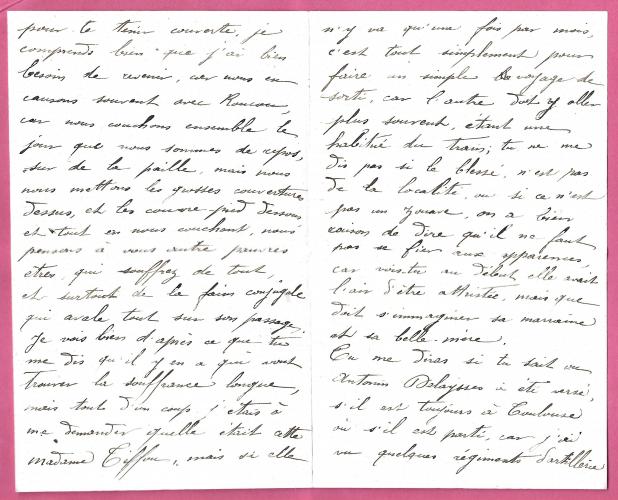 pour te tenir couverte, je
comprends bien que j'ai bien
besoin de revenir, car nous en
causons souvent avec Roucou,
car nous couchons ensemble le
jour que nous sommes de repos,
sur de la paille, mais nous
nous mettons les grosses couvertures
dessus, et les couvre-pied dessous
et tout en nous couchant, nous
pensons à vous autre pauvres
êtres, qui souffrez de tout,
et surtout de la faim conjugale
qui avale tout sur son passage,
je vois bien d'après ce que tu
me dis qu'il y en a qui vont
trouver la souffrance longue,
mais tout d'un coup j'étais à
me demander quelle était cette
madame Tiffou, mais si elle
n'y va qu'une fois par mois,
c'est tout simplement pour
faire un simple voyage de
sorti, car l'autre doit y aller
plus souvent, étant une
habitué du trans; tu ne me
dis pas si le blessé, n'est pas
de la localité, ou si ce n'est
pas un zouave, on a bien
raison de dire qu'il ne faut
pas se fier aux apparences,
car vois-tu au début elle avait
l'air d'être attristée, mais que
doit s'immaginer sa marraine
et sa belle mère,
Tu me diras si tu sait ou
Antonin Delaysses à été versé,
s'il est toujours à Toulouse
où s'il est parti, car j'ai
vu quelques régiments d'artillerie